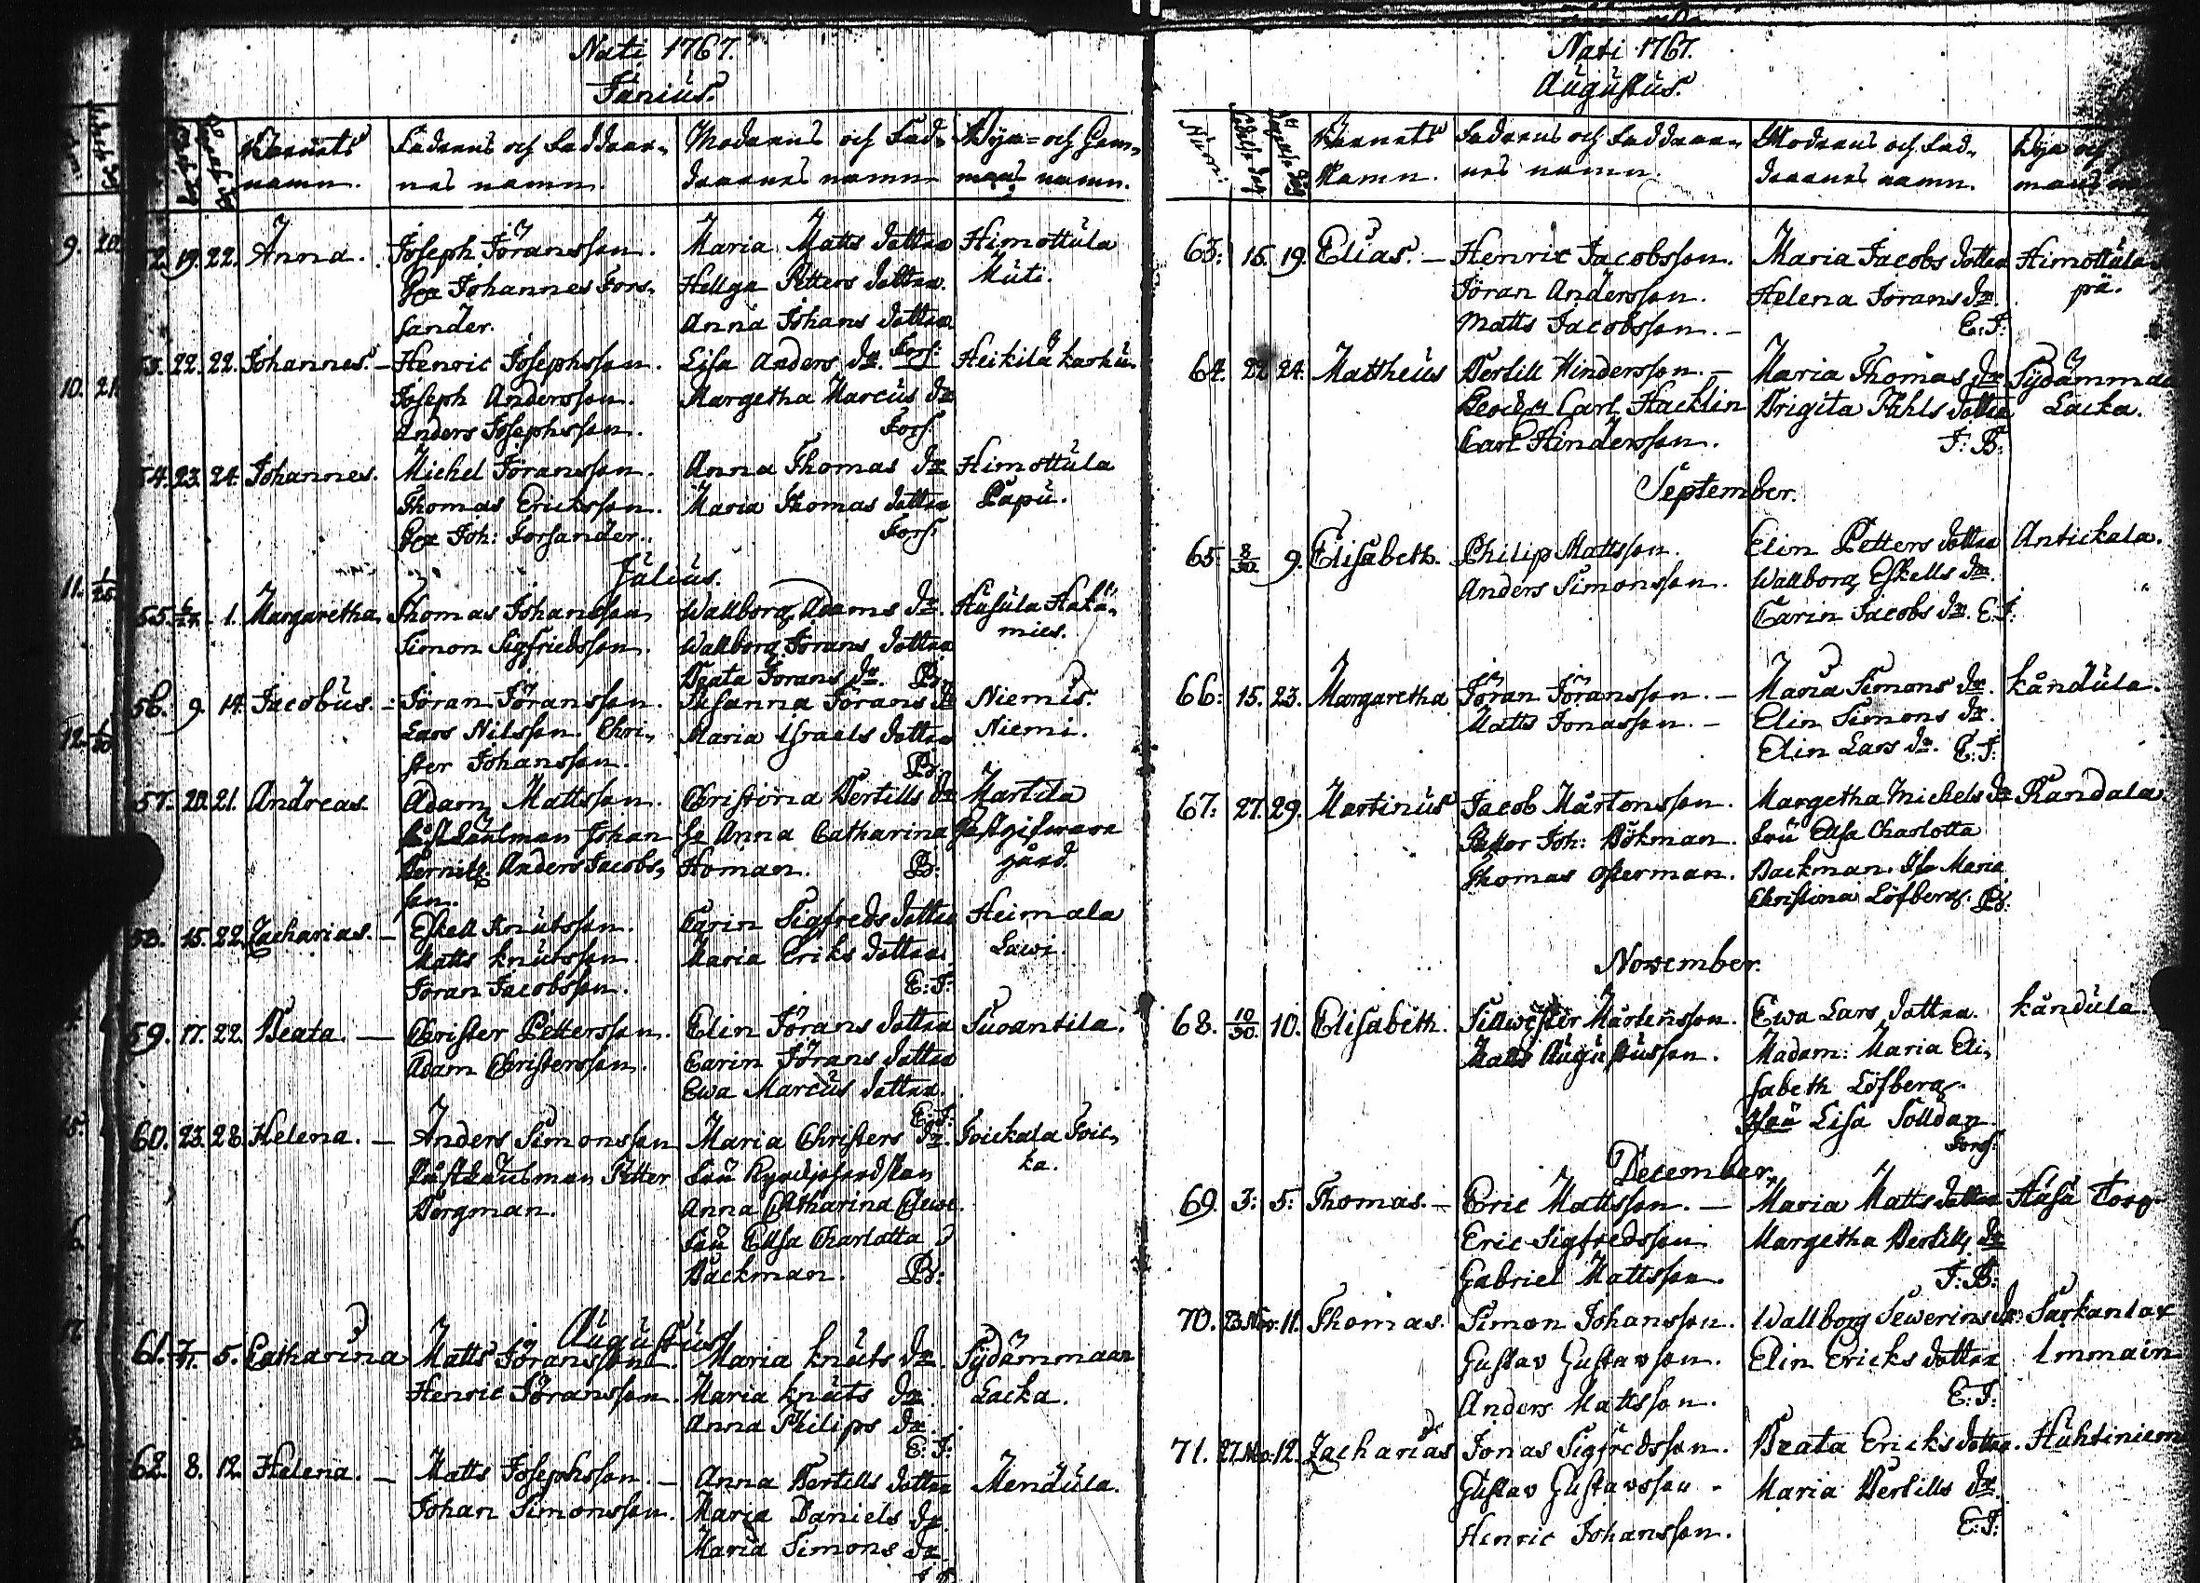 Nati 1767.
Junius.
Barnets namn.
Fadrens och Faddrar-
nes namn.
Modrens och Fad-
drarnes namn
Bya- och Hem-
mans namn.
52. 19. 22. Anna. Joseph Jöransson. Maria Matts dotter Himottula
Johannes Fors- Hellga Petters dotter Muti.
sander. Anna Johans dotter
Fors:
53. 22. 22. Johannes. – Henric Josephsson. Lisa Anders dr. Heikilä karhu
Joseph Andersson. Margetha Marcus dr
Anders Josephsson. Fors:
54. 23. 24. Johannes. Michel Jöransson. Anna Thomas dr Himottula
Thomas Ericksson. Maria Thomas dotter Papu.
Joh: Forsander. Fors:
Julius.
55. 1. Margaretha Thomas Johansson Wallborg Adams dr. Husula
Simon Sigfriedsson. Wallborg Jörans dotter mies.
Beata Jörans dr. B:
56. 9. 14. Jacobus. – Jöran Jöransson. Susanna Jörans dr Niemis.
Lars Nilsson. Chri- Maria Israels dotter Niemi.
ster Johansson. B:
57. 20. 21. Andreas. Adam Mattsson. Christina Bertills dr Martila
Länsman Johan Anna Catharina Gästgifware
Anders Jacobs- Homan. B: gård.
son.
58. 15. 22. Zacharias. – Eskell Knutsson. Carin Sigfreds dotter Heimala
Matts Knutsson. Maria Eriks dotter. Lawi.
Jöran Jacobsson. E: J:
59. 17. 22. Beata. – Christer Pettersson. Elin Jörans dotter Suoantila.
Adam Christersson. Carin Jörans dotter
Ewa Marcus dotter.
E: J:
60. 23. 28. Helena. – Anders Simonsson Maria Christers dr. Toickala Toic-
Länsman Petter Fru ka.
Bergman. Anna Catharina
Fru Ellsa Charlotta
Backman. B:
Augustus
61. 5. Catharina Matts Jöransson. Maria Knuts dr. Sydämmaan
Henric Jöransson. Maria Knuts dr. Lacka.
Anna Philips dr.
E: J:
62. 8. 12. Helena. – Matts Josephsson. – Anna Bertills dotter Mendula.
Johan Simonsson. Maria Daniels dr
Maria Simons dr
Nati 1767.
Augustus.
Num: Födelse dag Barnets Namn.
Fadrens och Faddrar-
nes namn.
Modrens och Fad-
drarnes namn.
Bya och
mans
63: 16. 19. Elias. – Henric Jacobsson. Maria Jacobs dotter Himottula
Jöran Andersson. Helena Jörans dr. pä.
Matts Jacobsson. – E: J:
64. 22 24. Mattheus Bertill Hindersson. – Maria Thomas dr Sydämmaa
Carl Hacklin Brigita Påhls dotter Lacka.
Carl Hindersson. J: B:
September.
65. 8/30 9. Elisabeth. Philip Mattsson. Elin Petters dotter Antickala.
Anders Simonsson. Wallborg Eskells dr.
Carin Jacobs dr. E: J:
66: 15. 23. Margaretha Jöran Jöransson. – Maria Simons dr. Kåndula.
Matts Jonasson. – Elin Simons dr.
Elin Lars dr. E: J:
67: 27. 29. Martinus Jacob Mårtensson. Margetha Michels dr Randala.
Joh: Bökman. Fru Ellsa Charlotta
Thomas Österman. Backman. Maria
Christina Löfberg. B:
November.
68. 10/30. 10. Elisabeth. Sillwester Mårtensson. Ewa Lars dotter. Kåndula.
Matts Augustusson. Madam: Maria Eli-
sabeth Löfberg.
Lisa Solldan.
Fors:
December.
69. 3: 5: Thomas. – Eric Mattsson. – Maria Matts dotter Husu Torp
Eric Sigfredsson. Margetha Bertills dr
Gabriel Mattsson. J: B:
70. 23. Nov: 11. Thomas. Simon Johansson. Wallborg Sewerins dr. Sarkanlax
Gustav Gustavson. Elin Ericks dotter Immain
Anders Mattsson. E: J:
71. 27. No: 12. Zacharias Jonas Sigfredsson. Beata Ericks dotter. Huhtiniem
Gustav Gustavsson. Maria Bertills dr.
Henric Johansson. E: J: